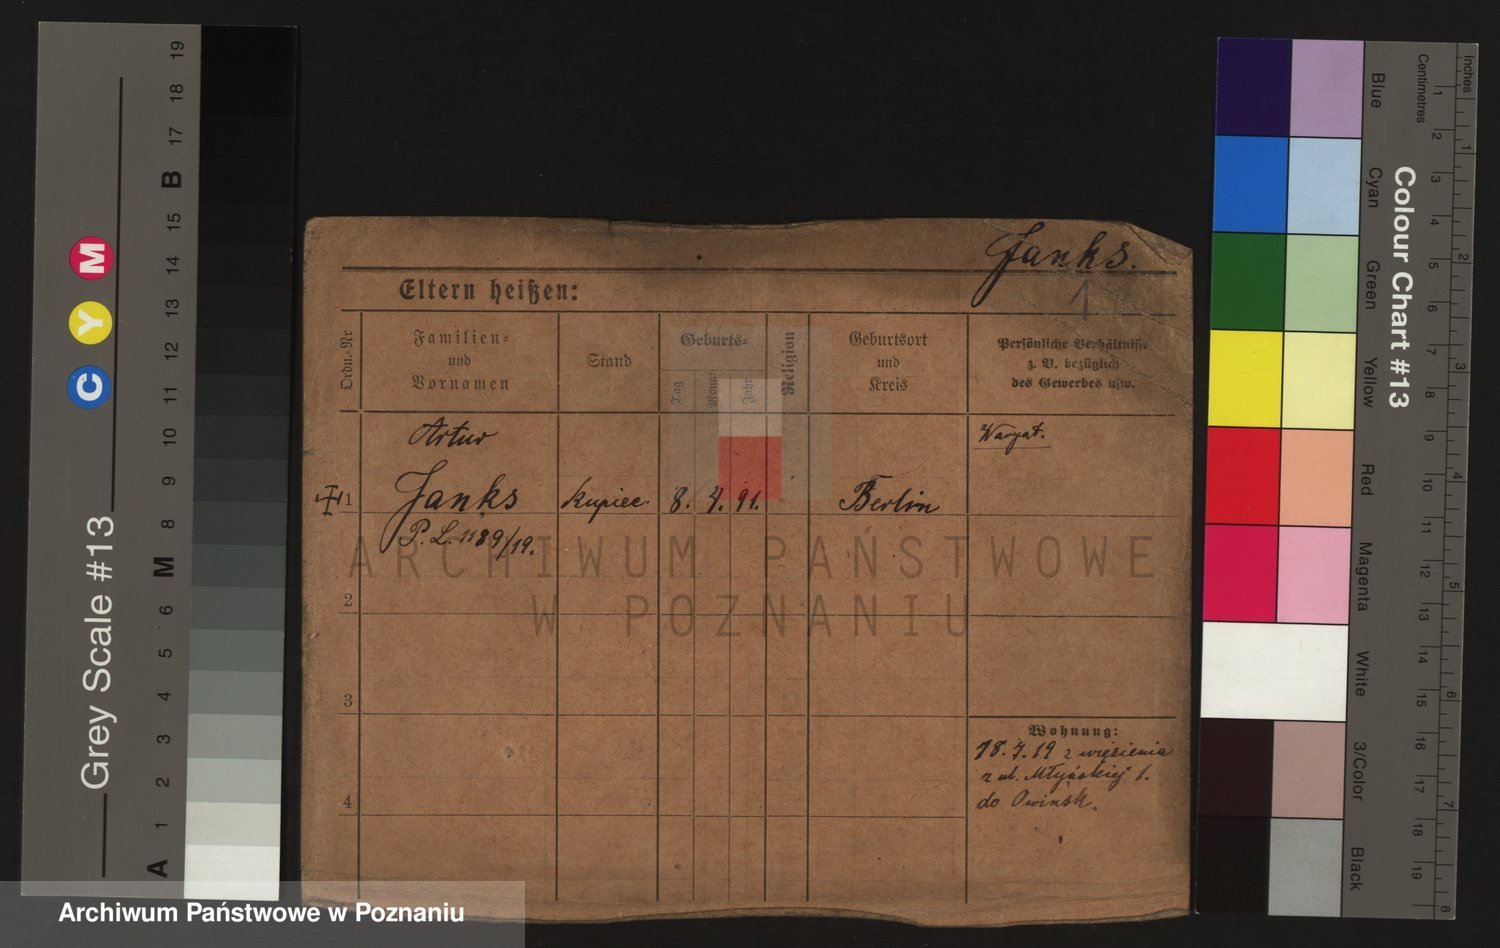 Janks.
1
Eltern heißen:
Ordn.-Nr
Familien-
und
Vornamen
Stand
Geburts-
Tag
Monat
Jahr
Religion
Geburtsort
und
Kreis
Persönliche Verhältnisse
z. B. bezüglich
des Gewerbes usw.
Artur
Waryat.
1 Janks kupiec 8. 4. 91. Berlin
P. L. 1189/19.
2
3
4
Wohnung:
18. 7. 19 z więzienia
z ul. Młyńskiej 1.
do Owińsk.
ARCHIWUM PAŃSTWOWE
W POZNANIU
Archiwum Państwowe w Poznaniu
Grey Scale #13
C Y M
A 1 2 3 4 5 6 M 8 9 10 11 12 13 14 15 B 17 18 19
Colour Chart #13
Blue Cyan Green Yellow Red Magenta White 3/Color Black
Centimetres
1 2 3 4 5 6 7 8 9 10 11 12 13 14 15 16 17 18 19
Inches
1 2 3 4 5 6 7 8